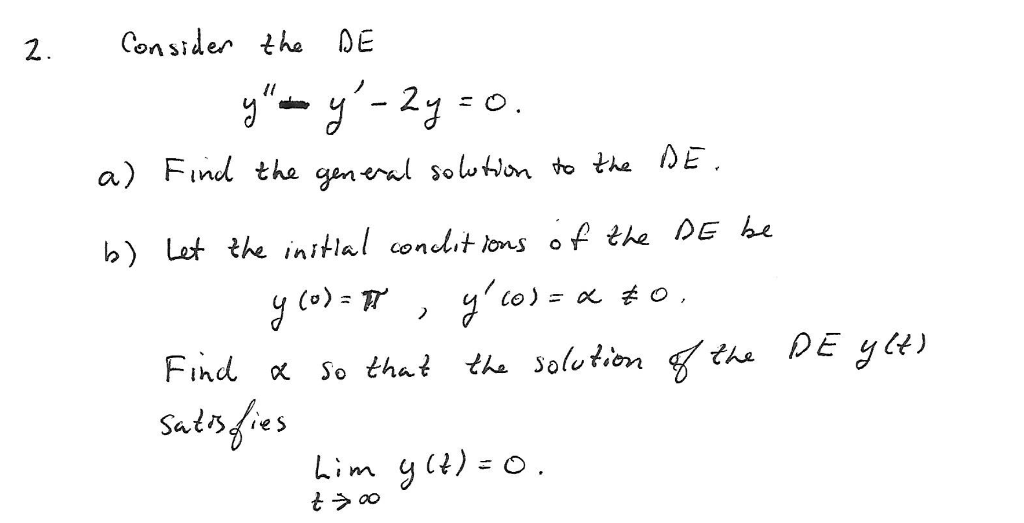 2. Consider the DE
y'' - y' - 2y = 0.
a) Find the general solution to the DE.
b) Let the initial conditions of the DE be
y(0) = π, y'(0) = α ≠ 0.
Find α so that the solution of the DE y(t)
satisfies
Lim y(t) = 0.
t → ∞